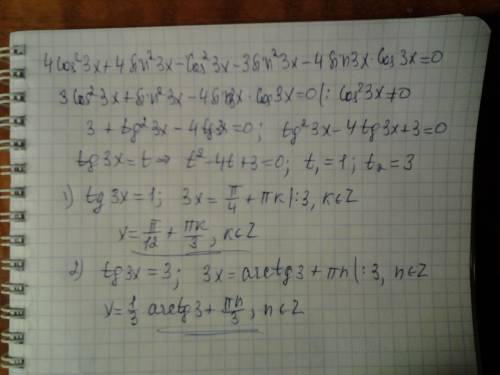 4cos²3x+4sin²3x-cos²3x-3sin²3x-4sin3x·cos3x=0
3cos²3x+sin²3x-4sin3x·cos3x=0 |: cos²3x≠0
3+tg²3x-4tg3x=0; tg²3x-4tg3x+3=0
tg3x=t ⇒ t²-4t+3=0; t₁=1; t₂=3
1) tg3x=1; 3x=π/4+πk |:3, k∈Z
x=π/12+πk/3, k∈Z
2) tg3x=3; 3x=arctg3+πn |:3, n∈Z
x=1/3 arctg3+πn/3, n∈Z